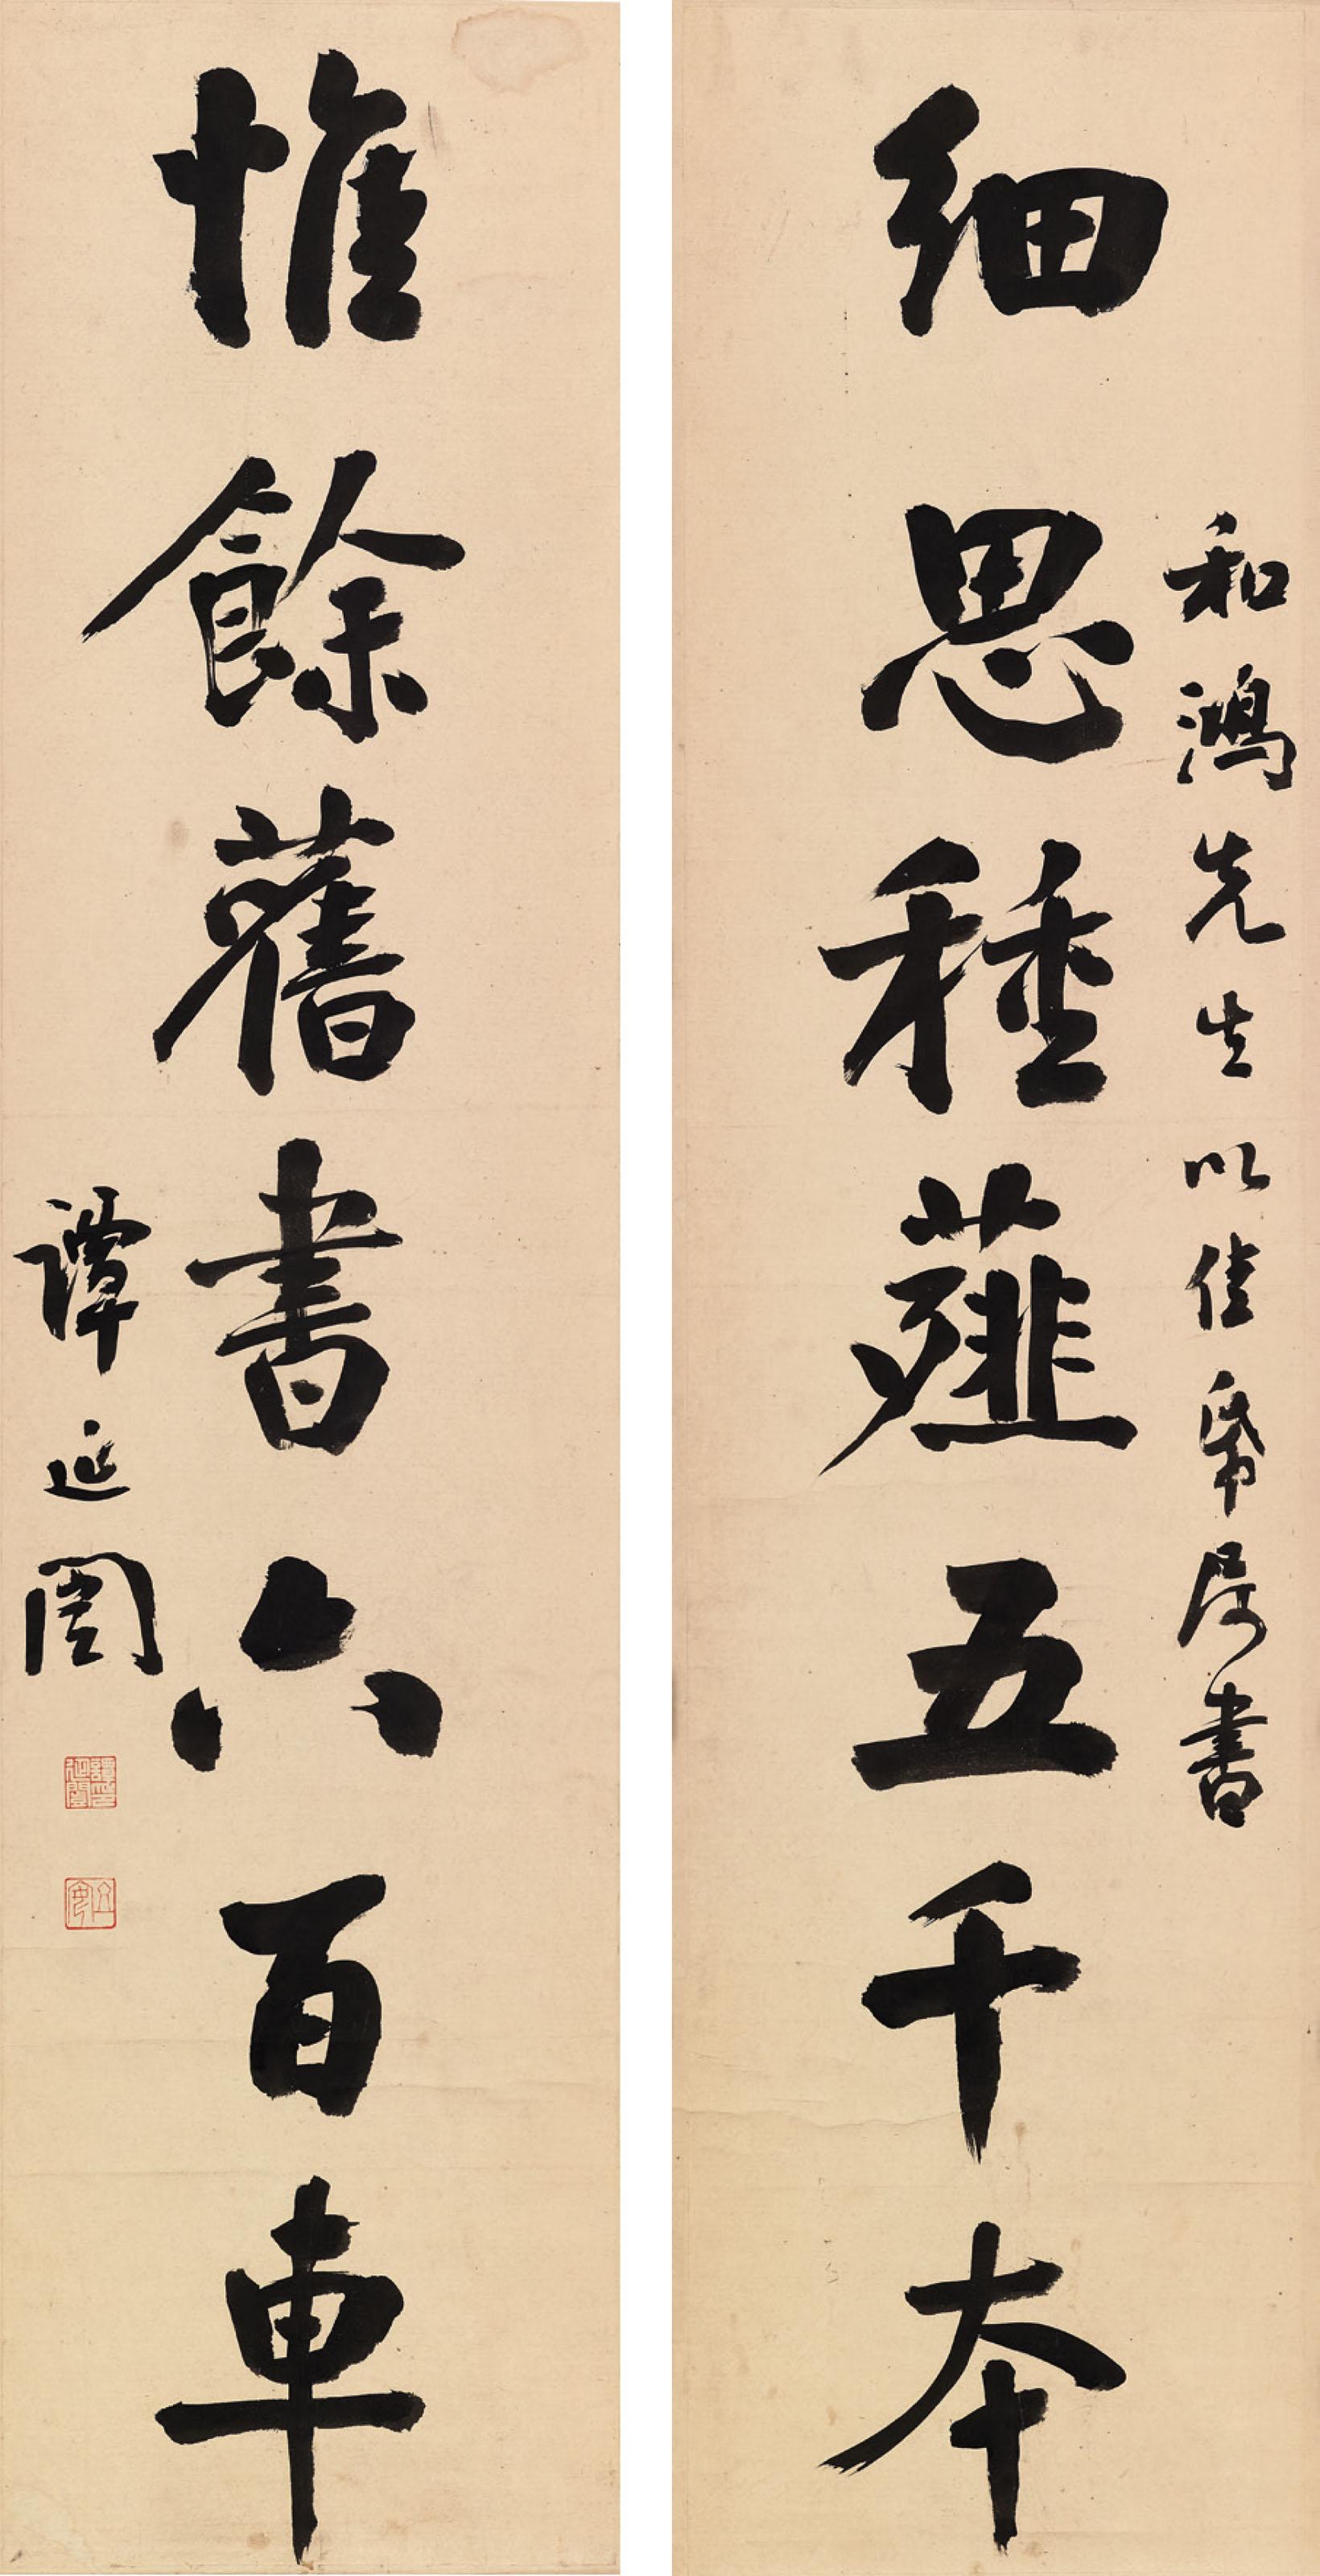 和鴻先生以佳帋屬書
細思種薤五千本
惟餘舊書六百車
譚延闓
譚延闓印